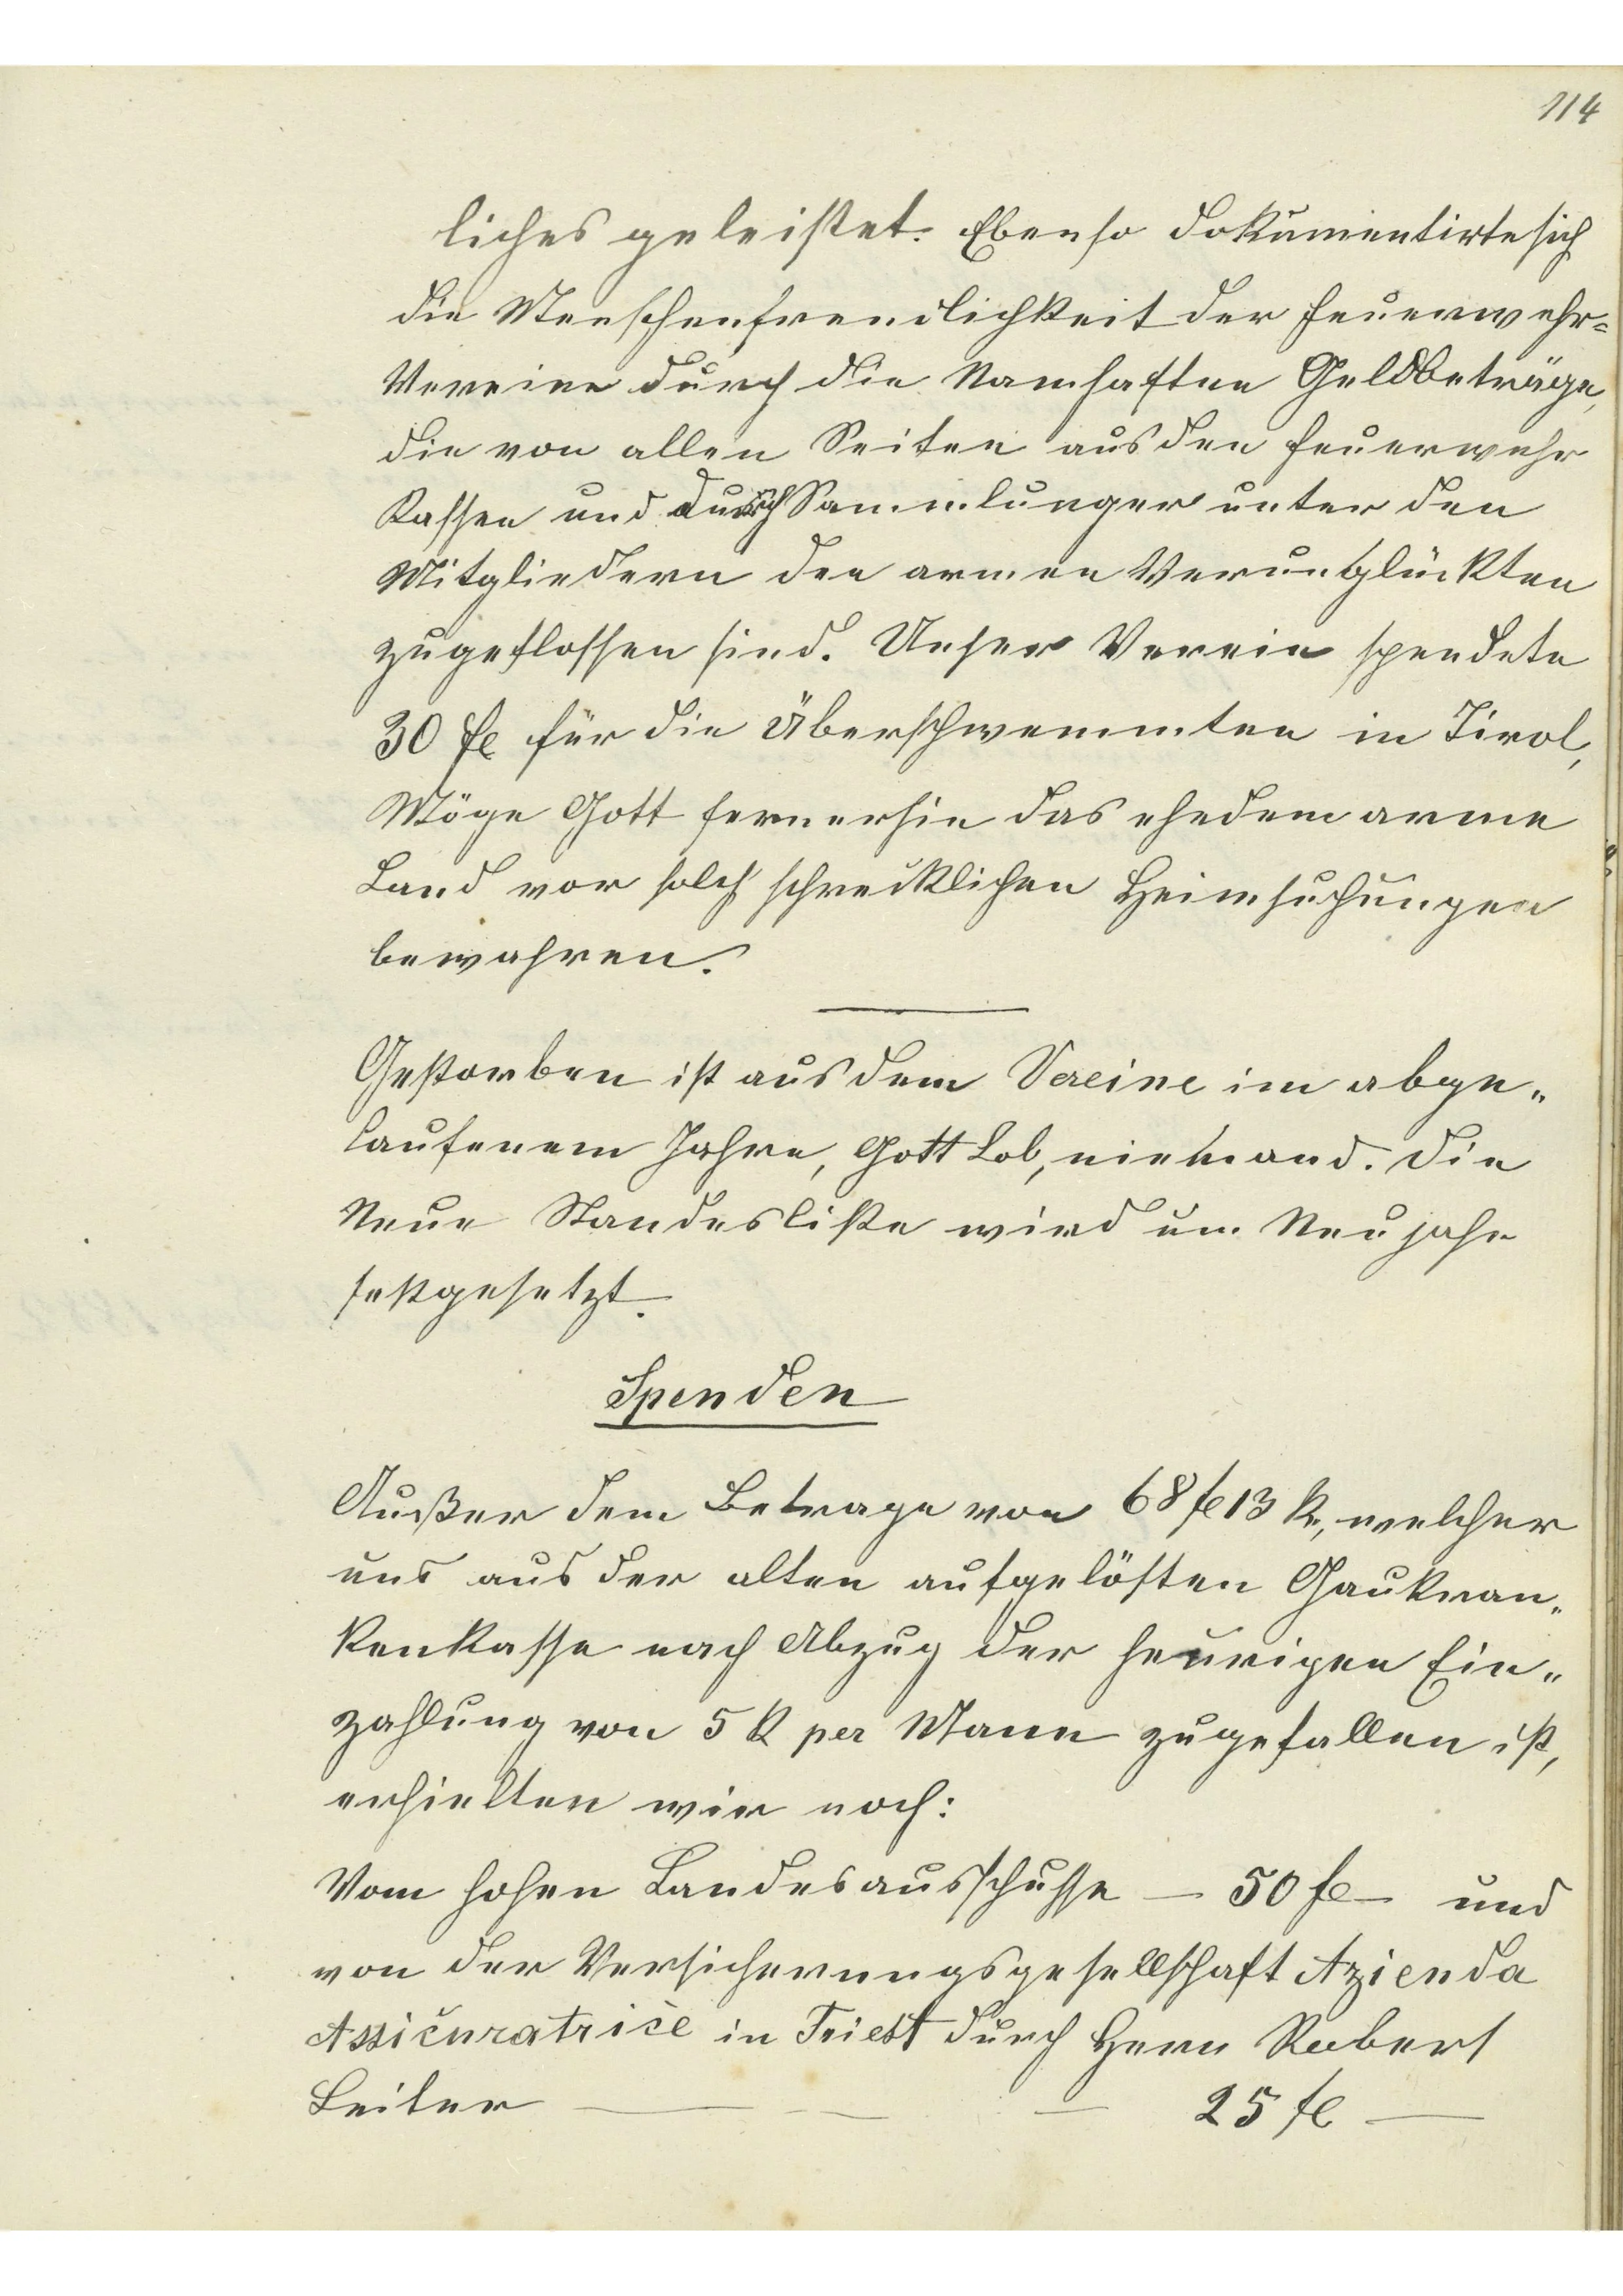 114
liches geleistet. Ebenso dokumentirte sich
die Menschenfreundlichkeit der Feuerwehr=
Vereine durch die Namhaften Geldbeträge,
die von allen Seiten aus den Feuerwehr
Kassen und durch Sammlungen unter den
Mitgliedern den armen Verunglückten
zugeflossen sind. Unser Verein spendete
30 fl für die Überschwemmten in Tirol,
Möge Gott fernerhin das ehedem arme
Land vor solch schrecklichen Heimsuchungen
bewahren.
Gestorben ist aus dem Vereine im abge„
laufenem Jahre, Gott Lob, niemand. Die
Neue Standesliste wird um Neujahr
festgesetzt.
Spenden
Außer dem Betrage von 68 fl 13 kr, welcher
uns aus der alten aufgelösten Gaukran„
kenkasse nach Abzug der heurigen Ein„
zahlung von 5 k per Mann zugefallen ist,
erhielten wir noch:
Vom hohen Landesausschusse — 50 fl — und
von der Versicherungsgesellschaft Azienda
Assicuratrice in Triest durch Herrn Robert
Leiter — — — 25 fl —